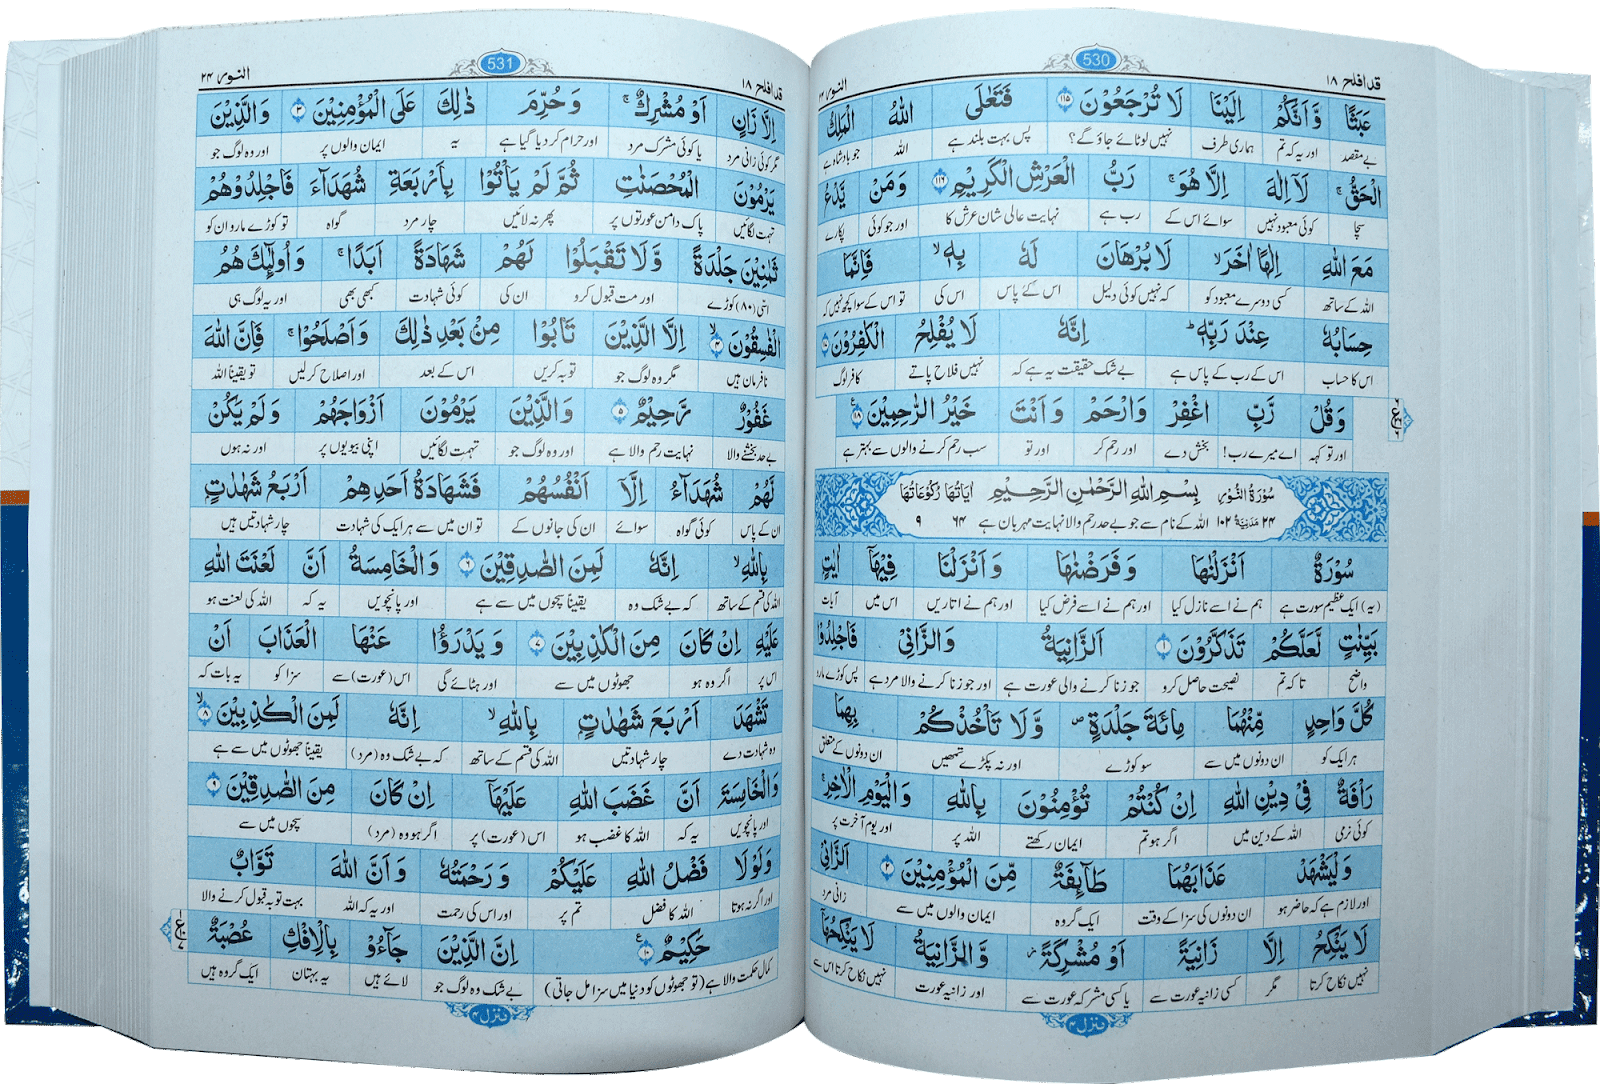 قد افلح ١٨
530
النور ٢٤
عَبَثًا وَّاَنَّكُمْ اِلَيْنَا لَا تُرْجَعُوْنَ ١١٥ فَتَعٰلَى اللّٰهُ الْمَلِكُ
بے مقصد اور یہ کہ تم ہماری طرف نہیں لوٹائے جاؤ گے؟ پس بہت بلند ہے اللہ جو بادشاہ ہے
الْحَقُّ ۚ لَاۤ اِلٰهَ اِلَّا هُوَ ۚ رَبُّ الْعَرْشِ الْكَرِيْمِ ١١٦ وَمَنْ يَّدْعُ
سچا کوئی معبود نہیں سوائے اس کے رب ہے نہایت عالی شان عرش کا اور جو کوئی پکارے
مَعَ اللّٰهِ اِلٰهًا اٰخَرَ ۙ لَا بُرْهَانَ لَهٗ بِهٖ ۙ فَاِنَّمَا
اللہ کے ساتھ کسی دوسرے معبود کو کہ نہیں کوئی دلیل اس کے پاس اس کی تو اس کے سوا کچھ نہیں کہ
حِسَابُهٗ عِنْدَ رَبِّهٖ ؕ اِنَّهٗ لَا يُفْلِحُ الْكٰفِرُوْنَ
اس کا حساب اس کے رب کے پاس ہے بے شک حقیقت یہ ہے کہ نہیں فلاح پاتے کافر لوگ
وَقُلْ رَّبِّ اغْفِرْ وَارْحَمْ وَاَنْتَ خَيْرُ الرّٰحِمِيْنَ ١١٨
اور تو کہہ اے میرے رب! بخش دے اور رحم کر اور تو سب رحم کرنے والوں سے بہتر ہے
سُوْرَةُ النُّوْرِ بِسْمِ اللّٰهِ الرَّحْمٰنِ الرَّحِيْمِ اٰيَاتُهَا رُكُوْعَاتُهَا
٢٤ مَدَنِيَّةٌ ١٠٢ اللہ کے نام سے جو بے حد رحم والا نہایت مہربان ہے ٦٤ ٩
سُوْرَةٌ اَنْزَلْنٰهَا وَفَرَضْنٰهَا وَاَنْزَلْنَا فِيْهَاۤ اٰيٰتٍۭ
(یہ) ایک عظیم سورت ہے ہم نے اسے نازل کیا اور ہم نے اسے فرض کیا اور ہم نے اتاریں اس میں آیات
بَيِّنٰتٍ لَّعَلَّكُمْ تَذَكَّرُوْنَ ١ اَلزَّانِيَةُ وَالزَّانِيْ فَاجْلِدُوْا
واضح تا کہ تم نصیحت حاصل کرو جو زنا کرنے والی عورت ہے اور جو زنا کرنے والا مرد ہے پس کوڑے مارو
كُلَّ وَاحِدٍ مِّنْهُمَا مِائَةَ جَلْدَةٍ ۪ وَّلَا تَاْخُذْكُمْ بِهِمَا
ہر ایک کو ان دونوں میں سے سو کوڑے اور نہ پکڑے تمہیں ان دونوں کے متعلق
رَاْفَةٌ فِيْ دِيْنِ اللّٰهِ اِنْ كُنْتُمْ تُؤْمِنُوْنَ بِاللّٰهِ وَالْيَوْمِ الْاٰخِرِ ۚ
کوئی نرمی اللہ کے دین میں اگر ہو تم ایمان رکھتے اللہ پر اور یوم آخرت پر
وَلْيَشْهَدْ عَذَابَهُمَا طَآئِفَةٌ مِّنَ الْمُؤْمِنِيْنَ ٢ اَلزَّانِيْ
اور لازم ہے کہ حاضر ہو ان دونوں کی سزا کے وقت ایک گروہ ایمان والوں میں سے زانی مرد
لَا يَنْكِحُ اِلَّا زَانِيَةً اَوْ مُشْرِكَةً ۫ وَّالزَّانِيَةُ لَا يَنْكِحُهَاۤ
نہیں نکاح کرتا مگر کسی زانیہ عورت سے یا کسی مشرکہ عورت سے اور زانیہ عورت نہیں نکاح کرتا اس سے
منزل ٤
قد افلح ١٨
531
النور ٢٤
اِلَّا زَانٍ اَوْ مُشْرِكٌ ۚ وَحُرِّمَ ذٰلِكَ عَلَى الْمُؤْمِنِيْنَ ٣ وَالَّذِيْنَ
مگر کوئی زانی مرد یا کوئی مشرک مرد اور حرام کر دیا گیا ہے یہ ایمان والوں پر اور وہ لوگ جو
يَرْمُوْنَ الْمُحْصَنٰتِ ثُمَّ لَمْ يَاْتُوْا بِاَرْبَعَةِ شُهَدَآءَ فَاجْلِدُوْهُمْ
تہمت لگائیں پاک دامن عورتوں پر پھر نہ لائیں چار مرد گواہ تو کوڑے مارو ان کو
ثَمٰنِيْنَ جَلْدَةً وَّلَا تَقْبَلُوْا لَهُمْ شَهَادَةً اَبَدًا ۚ وَاُولٰٓئِكَ هُمُ
اسّی (٨٠) کوڑے اور مت قبول کرو ان کی کوئی شہادت کبھی بھی اور یہ لوگ ہی
الْفٰسِقُوْنَ ۙ٤ اِلَّا الَّذِيْنَ تَابُوْا مِنْۢ بَعْدِ ذٰلِكَ وَاَصْلَحُوْا ۚ فَاِنَّ اللّٰهَ
نافرمان ہیں مگر وہ لوگ جو توبہ کریں اس کے بعد اور اصلاح کر لیں تو یقیناً اللہ
غَفُوْرٌ رَّحِيْمٌ ٥ وَالَّذِيْنَ يَرْمُوْنَ اَزْوَاجَهُمْ وَلَمْ يَكُنْ
بے حد بخشنے والا نہایت رحم والا ہے اور وہ لوگ جو تہمت لگائیں اپنی بیویوں پر اور نہ ہوں
لَّهُمْ شُهَدَآءُ اِلَّاۤ اَنْفُسُهُمْ فَشَهَادَةُ اَحَدِهِمْ اَرْبَعُ شَهٰدٰتٍۭ
ان کے پاس کوئی گواہ سوائے ان کی جانوں کے تو ان میں سے ہر ایک کی شہادت چار شہادتیں ہیں
بِاللّٰهِ ۙ اِنَّهٗ لَمِنَ الصّٰدِقِيْنَ ٦ وَالْخَامِسَةُ اَنَّ لَعْنَتَ اللّٰهِ
اللہ کی قسم کے ساتھ کہ بے شک وہ یقیناً سچوں میں سے ہے اور پانچویں یہ کہ اللہ کی لعنت ہو
عَلَيْهِ اِنْ كَانَ مِنَ الْكٰذِبِيْنَ ٧ وَيَدْرَؤُا عَنْهَا الْعَذَابَ اَنْ
اس پر اگر وہ ہو جھوٹوں میں سے اور ہٹائے گی اس (عورت) سے سزا کو یہ بات کہ
تَشْهَدَ اَرْبَعَ شَهٰدٰتٍۭ بِاللّٰهِ ۙ اِنَّهٗ لَمِنَ الْكٰذِبِيْنَ ۙ٨
وہ شہادت دے چار شہادتیں اللہ کی قسم کے ساتھ کہ بے شک وہ (مرد) یقیناً جھوٹوں میں سے ہے
وَالْخَامِسَةَ اَنَّ غَضَبَ اللّٰهِ عَلَيْهَاۤ اِنْ كَانَ مِنَ الصّٰدِقِيْنَ ٩
اور پانچویں یہ کہ اللہ کا غضب ہو اس (عورت) پر اگر ہو وہ (مرد) سچوں میں سے
وَلَوْلَا فَضْلُ اللّٰهِ عَلَيْكُمْ وَرَحْمَتُهٗ وَاَنَّ اللّٰهَ تَوَّابٌ
اور اگر نہ ہوتا اللہ کا فضل تم پر اور اس کی رحمت اور یہ کہ اللہ بہت توبہ قبول کرنے والا
حَكِيْمٌ ١٠ اِنَّ الَّذِيْنَ جَآءُوْ بِالْاِفْكِ عُصْبَةٌ
کمال حکمت والا ہے (تو جھوٹوں کو دنیا میں سزا مل جاتی) بے شک وہ لوگ جو لائے ہیں یہ بہتان ایک گروہ ہیں
منزل ٤